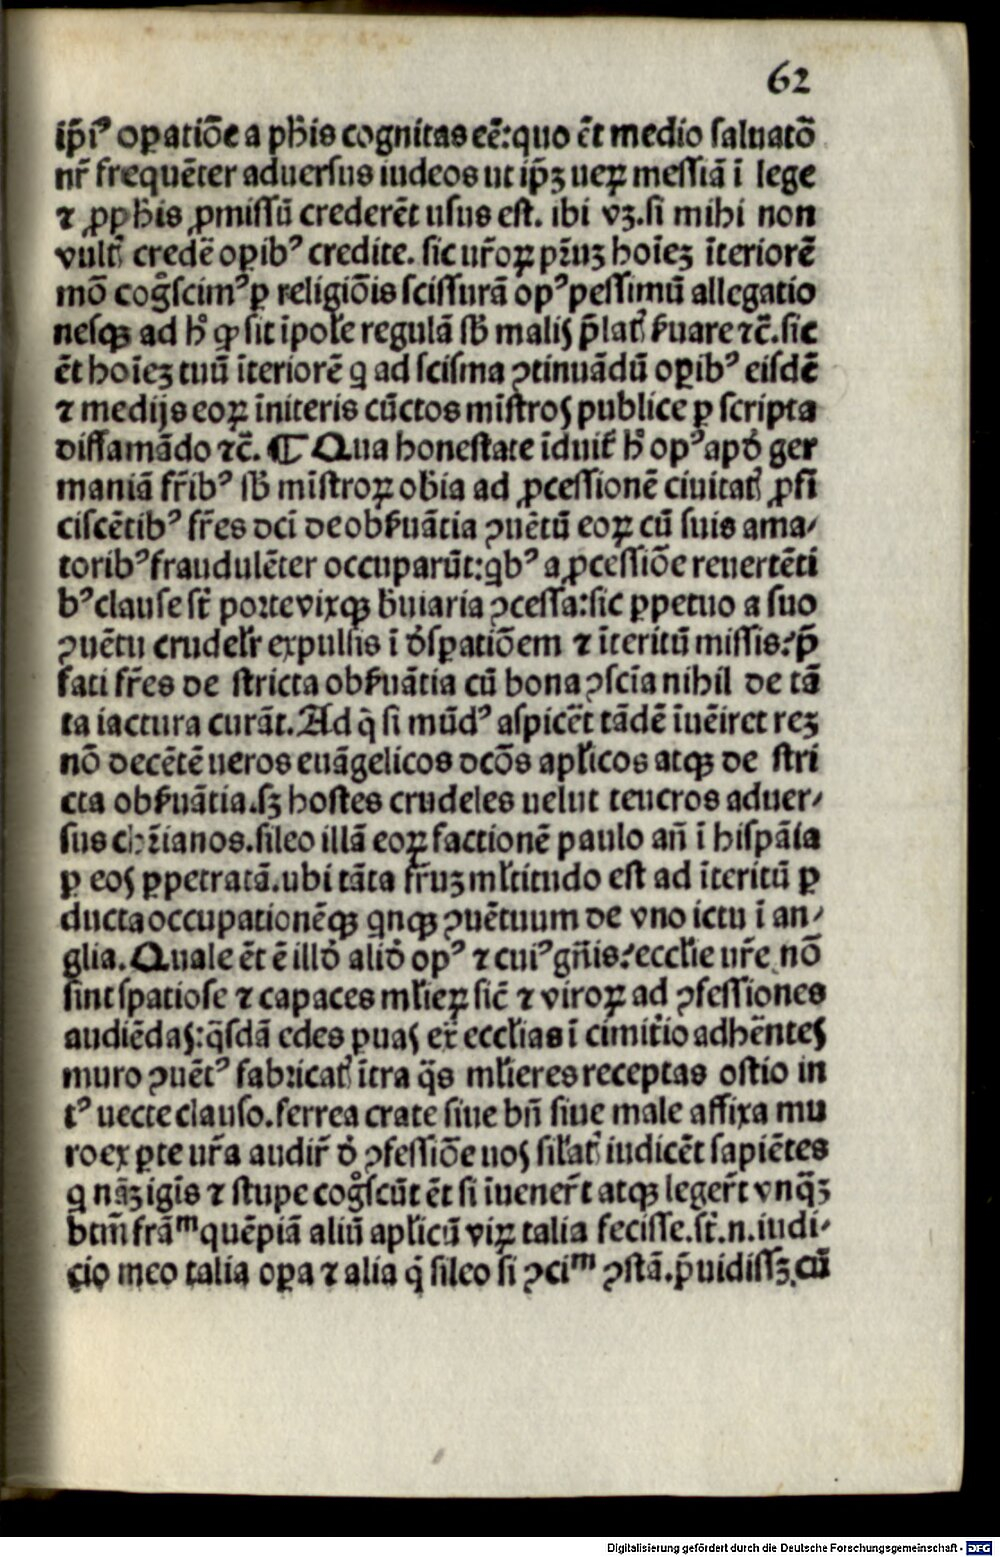 62
ip̄iꝰ op̲atiōe a ph̄is cognitas eē:quo ēt medio saluatō
nr̄ frequēter aduersus iudeos ut ip̄ꝫ ueꝝ messiā ī lege
⁊ ꝓph̄is ꝓmissū crederēt usus est. ibi vꝫ.si mihi non
vult̄ credē op̲ibꝰ credite. sic ur̄oꝝ pr̄uꝫ hoīeꝫ īteriorē
mō coḡscimꝰ ꝑ religiōis scissurā opꝰ pessimū allegatio
nesqꝫ ad h̄ ꝙ sit īpole regulā sb̄ malis p̄lat̄ ẜuare ⁊c̄.sic
ēt hoīeꝫ tuū īteriorē q ad scisma ꝯtinuādū op̲ibꝰ eisdē
⁊ medijs eoꝝ īniteris cūctos mīstros publice ꝑ scripta
diffamādo ⁊c̄. ¶ Qua honestate īduit̄ h̄ opꝰ apd̄ ger
maniā fr̄ibꝰ sb̄ mīstroꝝ ob̄ia ad ꝓcessionē ciuitat̄ ꝓfi
ciscētibꝰ fr̄es dcī de obẜuātia ꝯuētū eoꝝ cū suis ama⸗
toribꝰ fraudulēter occuparūt:qbꝰ a ꝓcessiōe reuertēti
bꝰ clause st̄ porte vixqꝫ b̄uiaria ꝯcessa:sic ꝑpetuo a suo
ꝯuētu crudelr̄ expulsis ī d̄sp̲atiōem ⁊ īteritū missis:p̄
fati fr̄es de stricta obẜuātia cū bona ꝯsciā nihil de tā
ta iactura curāt. Ad q̄ si mūdꝰ aspicēt tādē īuēiret reꝫ
nō decētē ueros euāgelicos dcōs apl̄icos atqꝫ de stri
cta obẜuātia.sꝫ hostes crudeles uelut teucros aduer⸗
sus chr̄ianos.sileo illā eoꝝ factionē paulo an̄ ī hispāia
ꝑ eos ꝑpetratā.ubi tāta fr̄uꝫ ml̄titudo est ad īteritū ꝑ
ducta occupationēqꝫ qnqꝫ ꝯuētuum de vno ictu ī an⸗
glia. Quale ēt ē illd̄ alid̄ opꝰ ⁊ cuiꝰ gn̄is:ecclīe ur̄e nō
sint spatiose ⁊ capaces ml̄ieꝝ sic̄ ⁊ viroꝝ ad ꝯfessiones
audiēdas:q̄sdā edes ꝑuas ex̄ eccl̄ias ī cimit̄io adhētes
muro ꝯuētꝰ fabricat̄ ītra q̄s ml̄ieres receptas ostio in
tꝰ uecte clauso.ferrea crate siue bn̄ siue male affixa mu
ro ex ꝑte ur̄a audir̄ d̄ ꝯfessiōe uos sil̄at̄ iudicēt sapiētes
q nāꝫ igīs ⁊ stupe coḡscūt ēt si īuener̄t atqꝫ leger̄t vnq̄ꝫ
btm̄ frāᵐ quēpiā aliū apl̄icū viꝝ talia fecisse.st̄.n.iudi⸗
cio meo talia op̲a ⁊ alia q̄ sileo si ꝯciᵐ ꝯstā.p̄uidissꝫ.cū
Digitalisierung gefördert durch die Deutsche Forschungsgemeinschaft - DFG